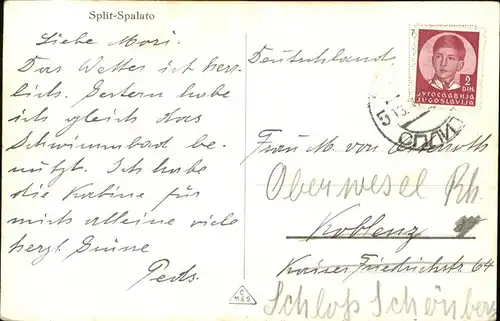 Split-Spalato
Liebe Mori.
Das Wetter ist herr-
lich. Gestern habe
ich gleich das
Schwimmbad be-
nützt. Ich habe
die Kabine für
mich alleine viele
herzl Grüsse
Deutschland.
2
DIN.
ЈУГОСЛАВИЈА
JUGOSLAVIJA
Frau M. von Osterroth
Oberwesel Rh.
Koblenz
Kaiser Friedrichstr 64
Schloß Schönberg
C
M&S